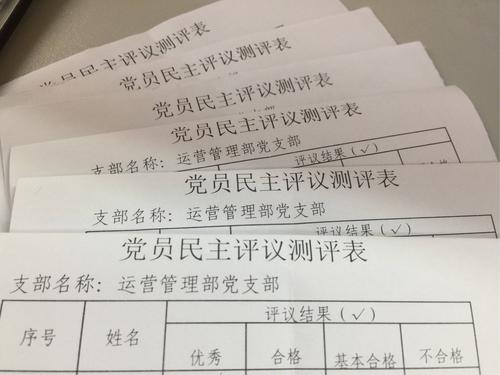 党员民主评议测评表
党员民主评议测评表
党员民主评议测评表
党员民主评议测评表
支部名称：运营管理部党支部
评议结果（√）
不合格
党员民主评议测评表
支部名称：运营管理部党支部
评议结果（√）
党员民主评议测评表
支部名称：运营管理部党支部
序号 姓名 评议结果（√）
优秀 合格 基本合格 不合格